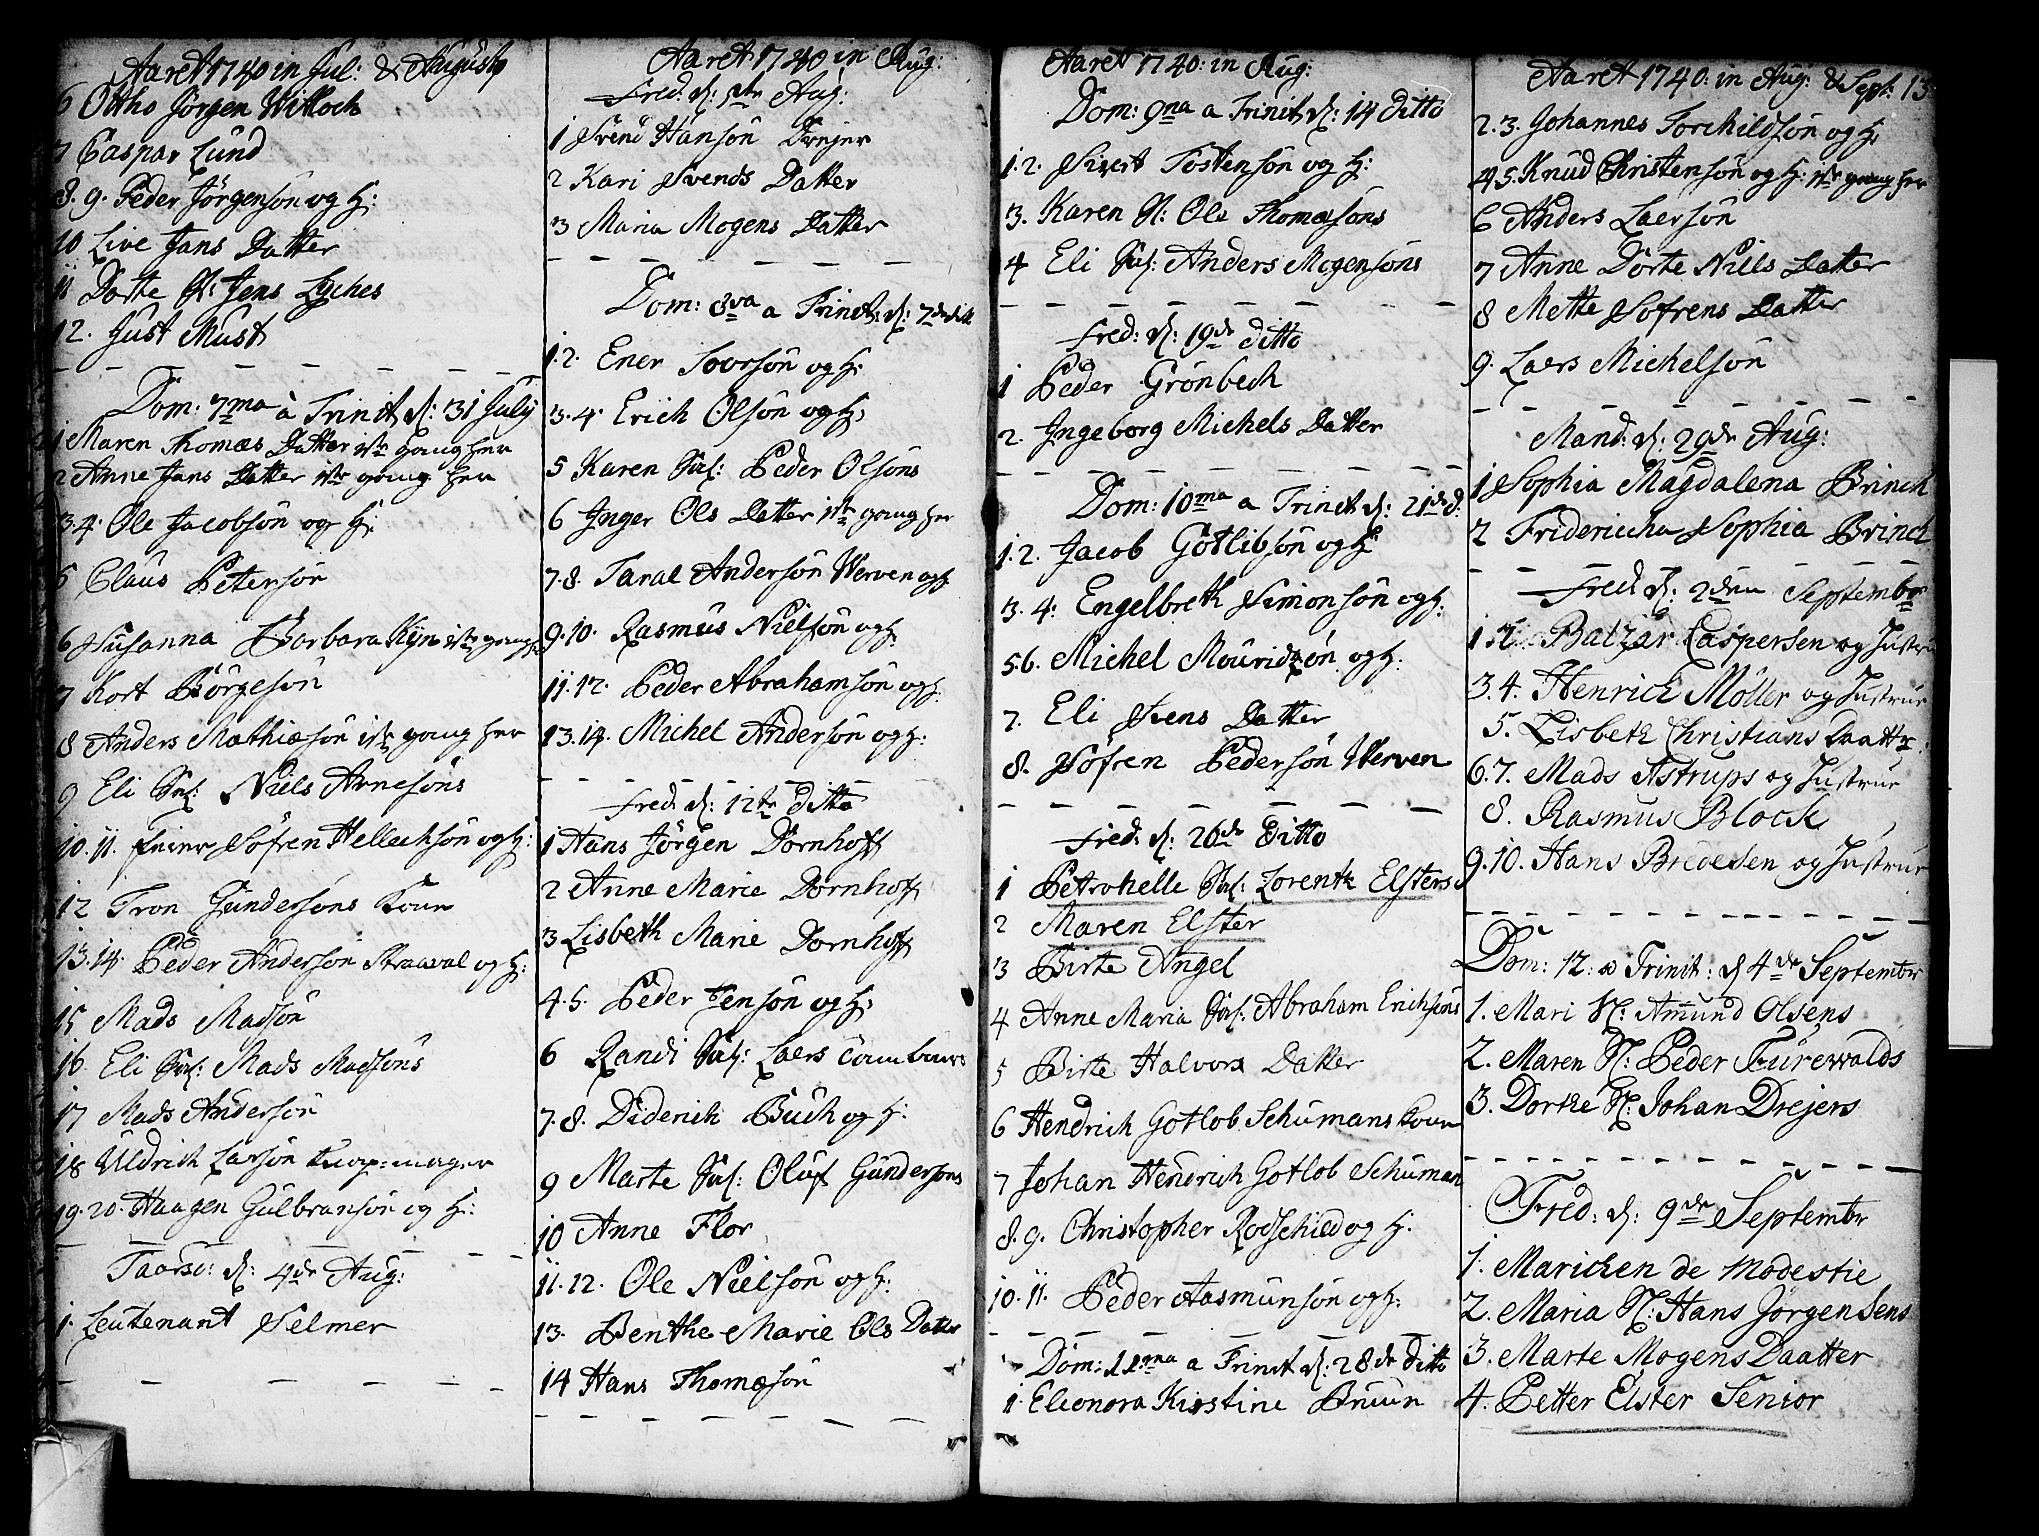 Aaret 1740 in Jul: & Augusto
6 Ottho Jörgen Willoch
7 Caspar Lund
8. 9. Peder Jörgensön og H:
10 Live Jans Datter
11 Dorte S: Jens Lyches
12. Just Must
Dom: 7ma à Trinit. d: 31 July
1 Maren Thomæs Datter 1ste gang her
2 Anne Jans Datter 1ste gang her
3. 4. Ole Jacobsön og H:
5 Claus Petersön
6 Susanna Barbara Kyn 1ste gang
7 Kort Börgesön
8 Anders Mathiæsön 1ste gang her
9 Eli Sal: Niels Arnesöns
10. 11. Feier Söfren Hellechsön og H:
12 Tron Gundersöns Kone
13. 14. Peder Andersön Straaval og H:
15 Mads Madsön
16. Eli Sal: Mads Madsöns
17 Mads Andersön
18 Uldrich Larsön Knap-mager
19. 20. Haagen Gulbransön og H:
Taarsd: d: 4de Aug:
1. Leutenant Selmer
Aaret 1740 in Aug:
Fred: d: 5te Aug:
1 Svend Hansön Drejer
2 Kari Svends Datter
3 Maria Mogens Datter
Dom: 8va a Trinit: d: 7de ditto
1. 2. Ener Toorsön og H:
3. 4. Erich Olsön og H:
5 Karen Sal: Peder Olsöns
6 Inger Ols Datter 1ste gang her
7. 8. Taral Andersön Werven og H
9. 10. Rasmus Nielsön og H:
11. 12. Peder Abrahamsön og H:
13. 14. Michel Andersön og H:
Fred: d: 12te Ditto
1 Hans Jörgen Dornhoff
2 Anne Marie Dornhoff
3 Lisbeth Marie Dornhoff
4. 5. Peder Jensön og H:
6 Randi Sal: Laers Tambours
7. 8. Diderich Buch og H:
9 Marte Sal: Oluf Gundersöns
10 Anne Flor
11. 12. Ole Nielsön og H:
13. Benthe Marie Ols Datter
14 Hans Thomæsön
Aaret 1740: in Aug:
Dom: 9na a Trinit. d: 14 Ditto
1. 2. Sivert Tostensön og H:
3. Karen S: Ole Thomæsöns
4 Eli Sal: Anders Mogensöns
Fred: d: 19de Ditto
1 Peder Grönbech
2. Ingeborg Michels Datter
Dom: 10ma a Trinit d: 21de d:
1. 2. Jacob Gotlibsön og H:
3. 4: Engelbreth Simonsön og H:
5. 6. Michel Mouridzön og H:
7. Eli Svens Datter
8. Söfren Pedersön Werven
Fred: d: 26de Ditto
1 Petronelle Sal: Lorentz Elsters
2 Maren Elster
3 Birte Angel
4 Anne Maria Sal: Abraham Erichsöns
5 Birte Halvors Datter
6 Hendrich Gotlob Schumans Kone
7 Johan Hendrich Gotlob Schuman
8. 9. Christopher Rodschied og H:
10. 11. Peder Aasmunsön og H:
Dom: 11ma a Trinit d: 28de Ditto
1. Eleonora Kirstine Bruun
Aaret 1740: in Aug: & Sept: 13
2. 3. Johannes Torchildsön og H:
4. 5. Knud Christensön og H: 1ste gang her
6 Anders Laersön
7 Anne Dorte Nills Datter
8 Mette Sofrens Datter
9. Laers Michelsön
Mand: d: 29de Aug:
1 Sophia Magdalena Brinch
2 Fridericha Sophia Brinch
Fred: d: 2den Septembr
1. 2. Balzar Caspersen og Hustru
3. 4. Henrich Möller og Hustrue
5. Lisbeth Christians Daatter
6. 7. Mads Astrups og Hustrue
8. Rasmus Block
9. 10. Hans Bredesen og Hustrue
Dom: 12: a Trinit: d 4de Septembr
1. Mari S: Amund Olsens
2. Maren S: Peder Furewalds
3. Dorthe S: Johan Drejers
Fred: d: 9de Septembr
1. Marichen de Modestie
2. Maria S: Hans Jörgensens
3. Marte Mogens Daatter
4. Petter Elster Senior